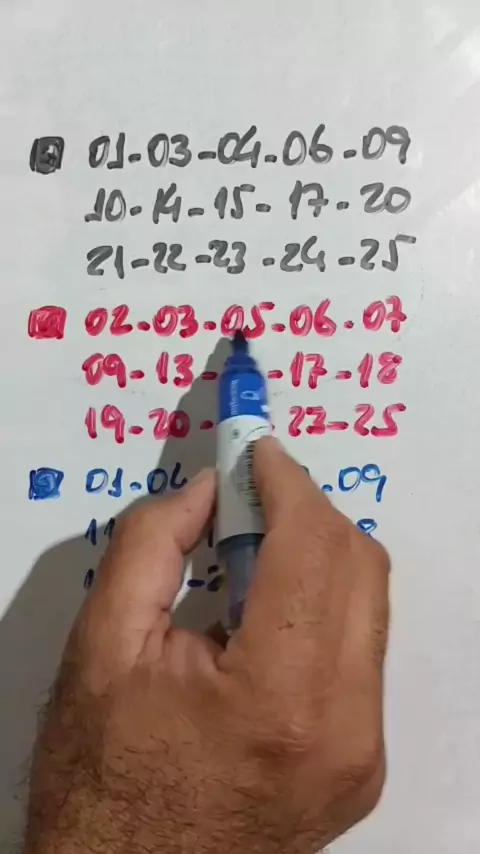 01-03-04-06-09
10-14-15-17-20
21-22-23-24-25
02-03-05-06-07
09-13- -17-18
19-20- 23-25
01-04 -09